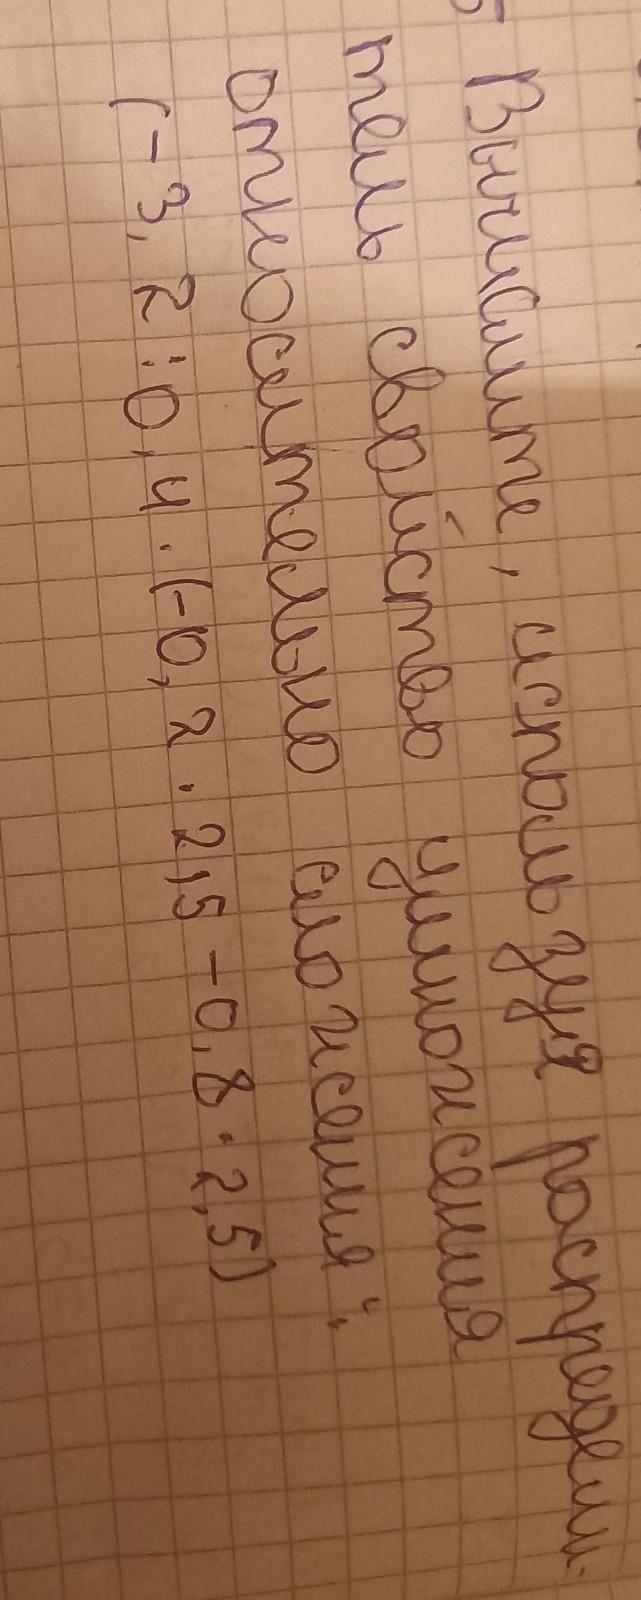 5 Вычислите, используя распредели-
тель свойство умножения
относительно сложения:
(-3,2:0,4·(-0,2·2,5-0,8·2,5)